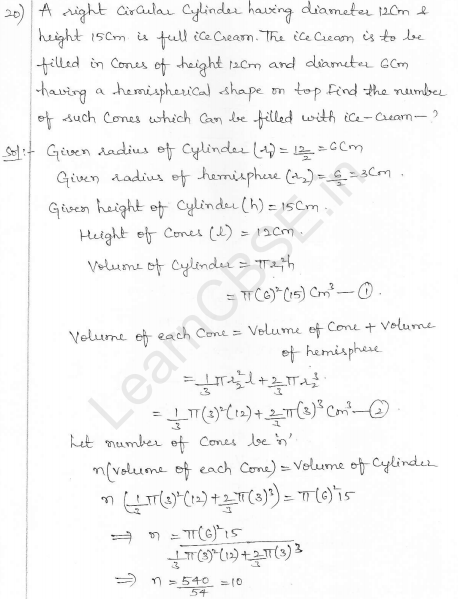 20) A right Circular Cylinder having diameter 12Cm &
height 15Cm is full ice Cream. The ice Cream is to be
filled in Cones of height 12Cm and diameter 6Cm
having a hemispherical shape on top find the number
of such Cones which Can be filled with ice-Cream-?
Sol:- Given radius of Cylinder (r₁) = 12/2 = 6Cm
Given radius of hemisphere (r₂) = 6/2 = 3Cm.
Given height of Cylinder (h) = 15Cm.
Height of Cones (l) = 12Cm.
Volume of Cylinder = πr₁²h
= π(6)²(15) Cm³ — ①.
Volume of each Cone = Volume of Cone + Volume
of hemisphere
= 1/3 πr₂²l + 2/3 πr₂³
= 1/3 π(3)²(12) + 2/3 π(3)³ Cm³ — ②
Let number of Cones be 'n'
n(Volume of each Cone) = Volume of Cylinder
n (1/3 π(3)²(12) + 2/3 π(3)³) = π(6)²15
⇒ n = π(6)²15 / (1/3 π(3)²(12) + 2/3 π(3)³)
⇒ n = 540/54 = 10
LearnCBSE.in